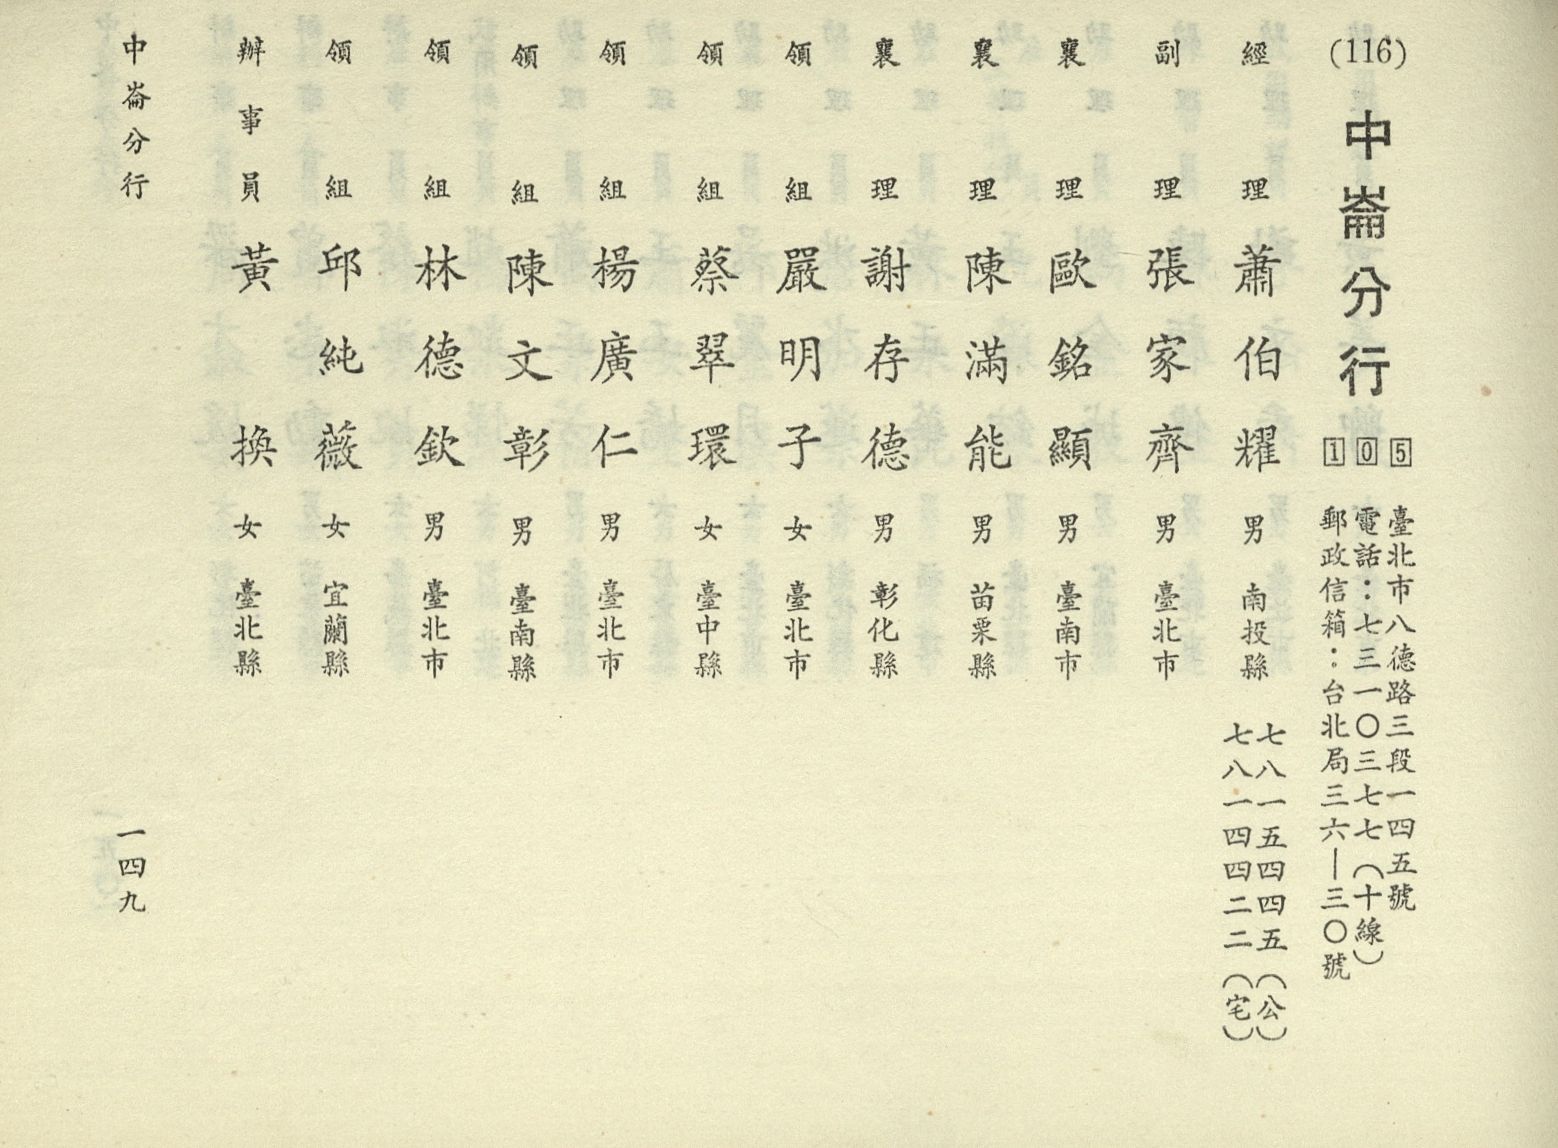 (116)
中崙分行
105
臺北市八德路三段一四五號
電話：七三一〇三七七（十線）
郵政信箱：台北局三六—三〇號
經理 蕭伯耀 男 南投縣
七八一五四四五（公）
七八一四四二二（宅）
副理 張家齊 男 臺北市
襄理 歐銘顯 男 臺南市
襄理 陳滿能 男 苗栗縣
襄理 謝存德 男 彰化縣
領組 嚴明子 女 臺北市
領組 蔡翠環 女 臺中縣
領組 楊廣仁 男 臺北市
領組 陳文彰 男 臺南縣
領組 林德欽 男 臺北市
領組 邱純薇 女 宜蘭縣
辦事員 黃換 女 臺北縣
中崙分行
一四九